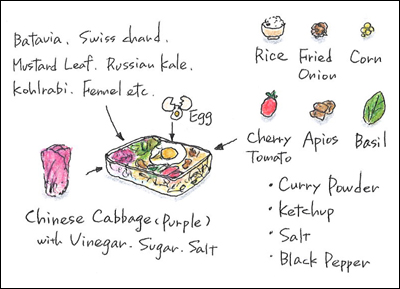 Batavia. Swiss chard.
Mustard Leaf. Russian kale.
Kohlrabi. Fennel etc.
Egg
Rice
Fried Onion
Corn
Cherry Tomato
Apios
Basil
Chinese Cabbage (Purple)
with Vinegar. Sugar. Salt
・Curry Powder
・Ketchup
・Salt
・Black Pepper